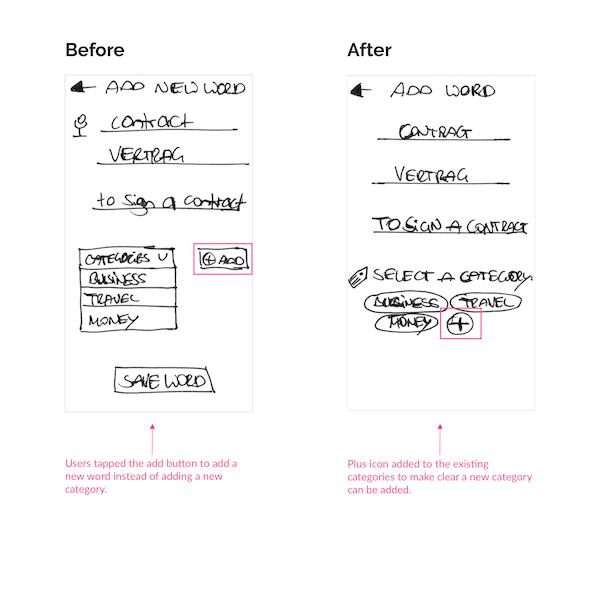 Before
ADD NEW WORD
contract
VERTRAG
to sign a contract
CATEGORIES
+ ADD
BUSINESS
TRAVEL
MONEY
SAVE WORD
Users tapped the add button to add a
new word instead of adding a new
category.
After
ADD WORD
CONTRACT
VERTRAG
TO SIGN A CONTRACT
SELECT A CATEGORY.
BUSINESS TRAVEL
MONEY +
Plus icon added to the existing
categories to make clear a new category
can be added.